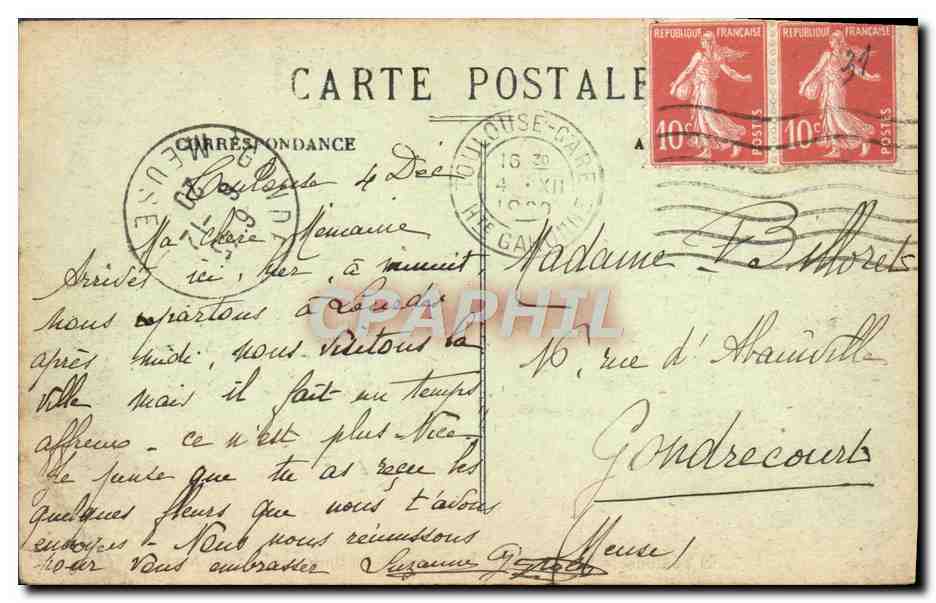 CARTE POSTALE
CORRESPONDANCE
A
REPUBLIQUE FRANÇAISE
10c POSTES
REPUBLIQUE FRANÇAISE
10c POSTES
31
TOULOUSE-GARE
16 30
4 XII
Hte GARONNE
MEUSE
6-12 20
Toulouse 4 Déc
Ma chère Mémaine
Arrivés ici, hier, à minuit,
nous repartons à Lourdes
après midi, nous visitons la
ville mais il fait un temps
affreux - ce n'est plus Nice.
Je pense que tu as reçu les
quelques fleurs que nous t'avons
envoyées - Nous nous réunissons
pour vous embrasser Suzanne
Madame V Billoret
rue d'Abainville
Gondrecourt
Meuse
CPAPHIL